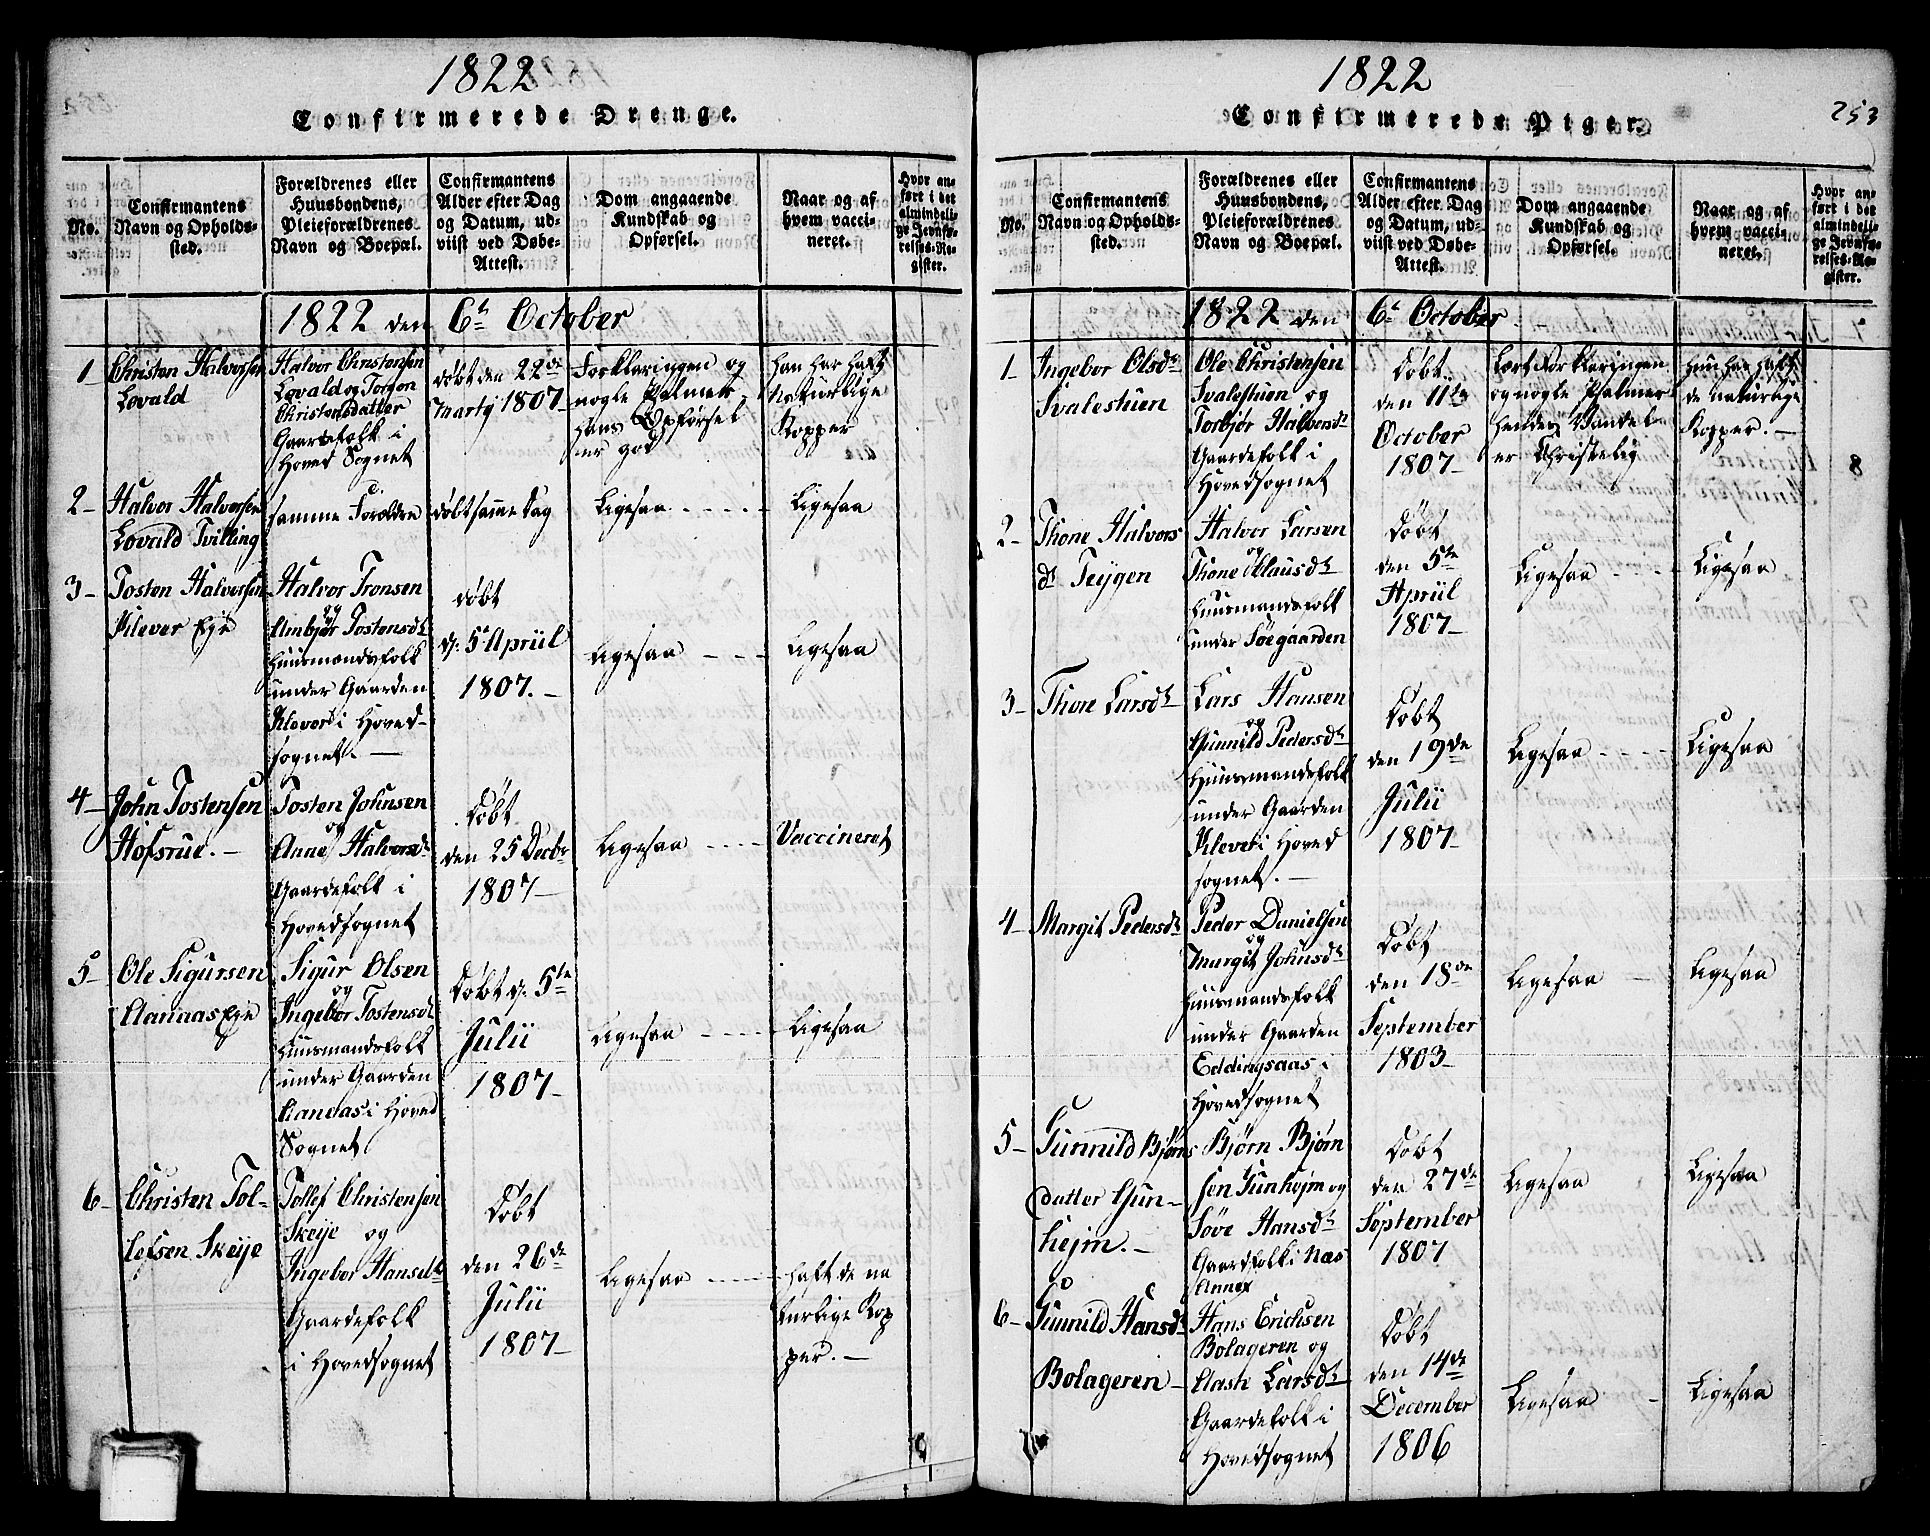 1822
Confirmerede Drenge.
No.
Confirmantens
Navn og Opholds-
sted.
Forældrenes eller
Huusbondens,
Pleieforældrenes
Navn og Boepæl.
Confirmantens
Alder efter Dag
og Datum, ud-
viist ved Døbe-
Attest.
Dom angaaende
Kundskab og
Opførsel.
Naar og af
hvem vacci-
neret.
Hvor an-
ført i det
almindeli-
ge Jevnfø-
relses-Re-
gister.
1822 den 6te October
1
Christen Halvorsen
Lovald
Halvor Christensen
Lovald og Torjon
Christensdatter
Gaardefolk i
Hoved Sognet
døbt den 22de
Martij 1807
Forklaringen og
nogle Psalmer
Hans Opførsel
er god
han har haft
Naturlige
Kopper
2
Halvor Halvorsen
Lovald Tvilling
samme Forældre
døbt samme Dag
Ligesaa
Ligesaa
3
Tosten Halvorsen
Klever Eje
Halvor Tronsen
og
Ambjør Tostensdt
Huusmandsfolk
under Gaarden
Klever i Hoved-
sognet
døbt
d: 5te Apriil
1807.
Ligesaa
Ligesaa
4
John Tostensen
Hofsrue.
Tosten Johnsen
og
Anne Halvorsdt
Gaardefolk i
Hovedsognet
Døbt
den 25 Decbr
1807
Ligesaa
Vaccineret
5
Ole Sigursen
Aanaas Eje
Sigur Olsen
og
Ingebor Tostensdt
Huusmandsfolk
under Gaarden
Aanaas i Hoved
Sognet
Døbt d: 5te
Julii
1807
Ligesaa
Ligesaa
6
Christen Tol-
lefsen Skeije
Tollef Christensen
Skeije og
Ingebor Hansdt
Gaardefolk
i Hovedsognet
Døbt
den 26de
Julii
1807
Ligesaa
haft de na
turlige Kop
per.
1822
253
Confirmerede Piger.
No.
Confirmantens
Navn og Opholds-
sted.
Forældrenes eller
Huusbondens,
Pleieforældrenes
Navn og Boepæl.
Confirmantens
Alder efter Dag
og Datum, ud-
viist ved Døbe-
Attest.
Dom angaaende
Kundskab og
Opførsel.
Naar og af
hvem vacci-
neret.
Hvor an-
ført i det
almindeli-
ge Jevnfø-
relses-Re-
gister.
1822 den 6te October
1
Ingebor Olsdr
Svalestuen
Ole Christensen
Svalestuen og
Torbjør Halvorsdt
Gaardefolk i
Hovedsognet
Døbt
den 11te
October
1807
Lært Forklaringen
og nogle Psalmer
hendes Vandel
er Christelig
hun har haft
de naturlige
Kopper.
2
Thone Halvors
dt Teijgen
Halvor Larsen
og
Thone Klausdt
Huusmandsfolk
under Søegaarden
Døbt
den 5te
Apriil
1807
Ligesaa
Ligesaa
3
Thore Larsdt
Lars Hansen
og
Gunnild Pedersdt
Huusmandsfolk
under Gaarden
Klever i Hoved
sognet.
Døbt
den 19de
Julii
1807
Ligesaa
Ligesaa
4
Margit Pedersdt
Peder Danielsen
og
Margit Johnsdt
Huusmandsfolk
under Gaarden
Eddingsaas i
Hovedsognet
Døbt
den 18de
September
1803
Ligesaa
Ligesaa
5
Gunnild Bjørns
datter Gun-
hejm.
Bjørn Bjørn
sen Gunhejm og
Søve Hansdt
Gaardfolk i Næs
Annex
Døbt
den 27de
September
1807
Ligesaa
Ligesaa
6
Gunnild Hansdt
Bolageren
Hans Erichsen
Bolageren og
Aaste Larsdt
Gaardefolk i
Hovedsognet
Døbt
den 14de
December
1806
Ligesaa
Ligesaa